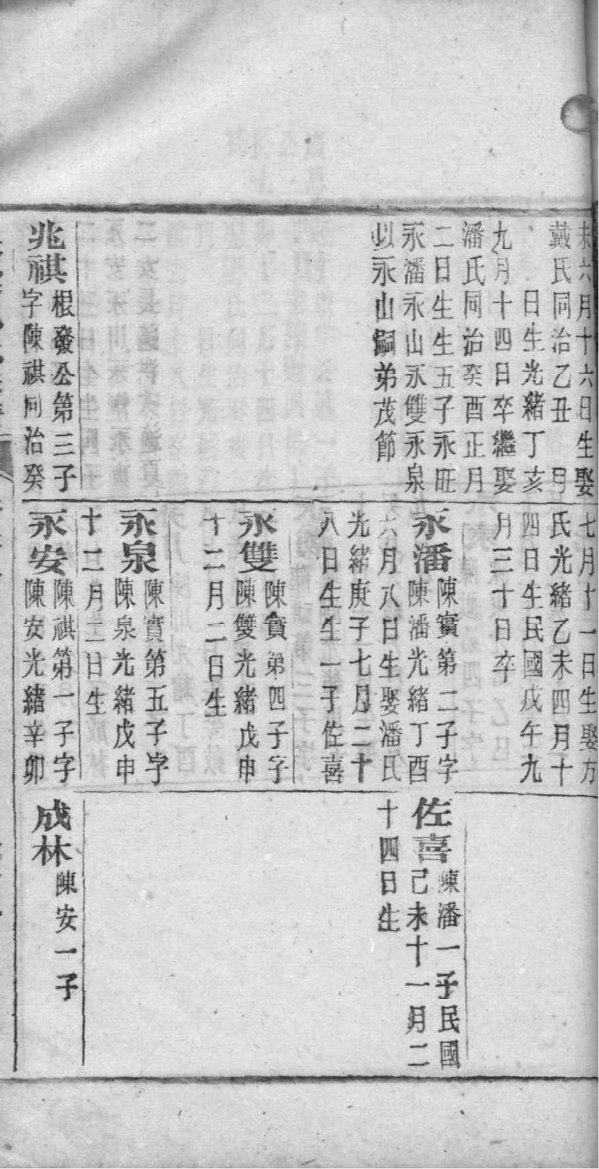 未六月十六日生娶
戴氏同治乙丑 月
日生光緒丁亥
九月十四日卒繼娶
潘氏同治癸酉正月
二日生生五子永旺
永潘永山永雙永泉
以永山嗣弟茂節
兆祺
根發公第三子
字陳祺同治癸
七月十一日生娶方
氏光緒乙未四月十
四日生民國戊午九
月三十日卒
永潘
陳寶第二子字
陳潘光緒丁酉
六月八日生娶潘氏
光緒庚子七月二十
八日生生一子佐喜
永雙
陳寶第四子字
陳雙光緒戊申
十二月二日生
永泉
陳寶第五子字
陳泉光緒戊申
十二月二日生
永安
陳祺第一子字
陳安光緒辛卯
佐喜
陳潘一子民國
己未十一月二
十四日生
成林
陳安一子